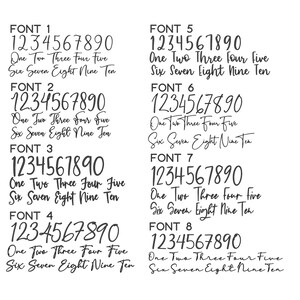 FONT 1
1234567890
One Two Three Four Five
Six Seven Eight Nine Ten
FONT 2
1234567890
One Two Three Four Five
Six Seven Eight Nine Ten
FONT 3
1234567890
One Two Three Four Five
Six Seven Eight Nine Ten
FONT 4
1234567890
One Two Three Four Five
Six Seven Eight Nine Ten
FONT 5
1234567890
One Two Three Four Five
Six Seven Eight Nine Ten
FONT 6
1234567890
One Two Three Four Five
Six Seven Eight Nine Ten
FONT 7
1234567890
One Two Three Four Five
Six Seven Eight Nine Ten
FONT 8
1234567890
One Two Three Four Five
Six Seven Eight Nine Ten